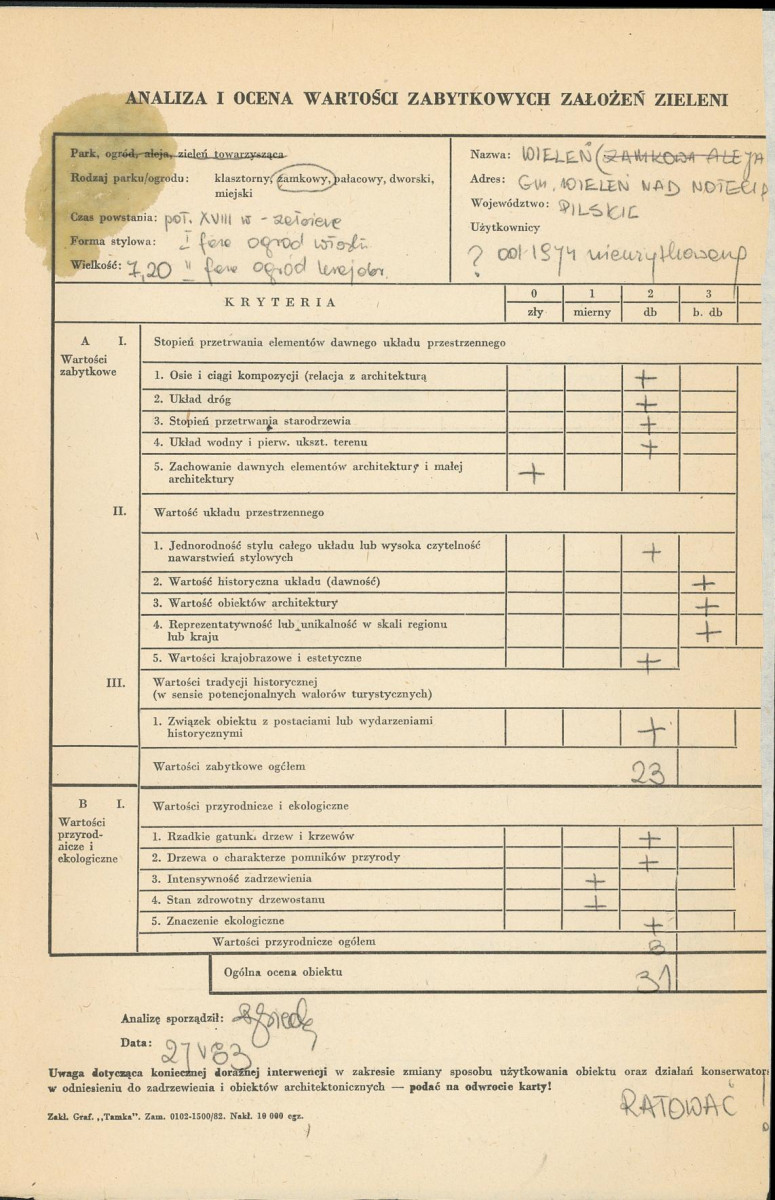 ANALIZA I OCENA WARTOŚCI ZABYTKOWYCH ZAŁOŻEŃ ZIELENI
Park, ogród, aleja, zieleń towarzysząca
Rodzaj parku/ogrodu: klasztorny, zamkowy, pałacowy, dworski,
miejski
Czas powstania: poł. XVIII w - założenie
Forma stylowa: I faza ogród włoski
Wielkość: 7,20 II faza ogród krajobr.
Nazwa: WIELEŃ (ZAMKOWA ALEJA
Adres: GM. WIELEŃ NAD NOTECIĄ
Województwo: PILSKIE
Użytkownicy
? od 1974 nieużytkowany
KRYTERIA
0 1 2 3
zły mierny db b. db
A I. Stopień przetrwania elementów dawnego układu przestrzennego
Wartości
zabytkowe
1. Osie i ciągi kompozycji (relacja z architekturą +
2. Układ dróg +
3. Stopień przetrwania starodrzewia +
4. Układ wodny i pierw. ukszt. terenu +
5. Zachowanie dawnych elementów architektury i małej
architektury +
II. Wartość układu przestrzennego
1. Jednorodność stylu całego układu lub wysoka czytelność
nawarstwień stylowych +
2. Wartość historyczna układu (dawność) +
3. Wartość obiektów architektury +
4. Reprezentatywność lub unikalność w skali regionu
lub kraju +
5. Wartości krajobrazowe i estetyczne +
III. Wartości tradycji historycznej
(w sensie potencjonalnych walorów turystycznych)
1. Związek obiektu z postaciami lub wydarzeniami
historycznymi +
Wartości zabytkowe ogółem 23
B I. Wartości przyrodnicze i ekologiczne
Wartości
przyrod-
nicze i
ekologiczne
1. Rzadkie gatunki drzew i krzewów +
2. Drzewa o charakterze pomników przyrody +
3. Intensywność zadrzewienia +
4. Stan zdrowotny drzewostanu +
5. Znaczenie ekologiczne +
Wartości przyrodnicze ogółem 8
Ogólna ocena obiektu 31
Analizę sporządził:
Data: 27 V 83
Uwaga dotycząca koniecznej doraźnej interwencji w zakresie zmiany sposobu użytkowania obiektu oraz działań konserwator
w odniesieniu do zadrzewienia i obiektów architektonicznych — podać na odwrocie karty!
RATOWAĆ!
Zakł. Graf. „Tamka". Zam. 0102-1500/82. Nakł. 10 000 egz.